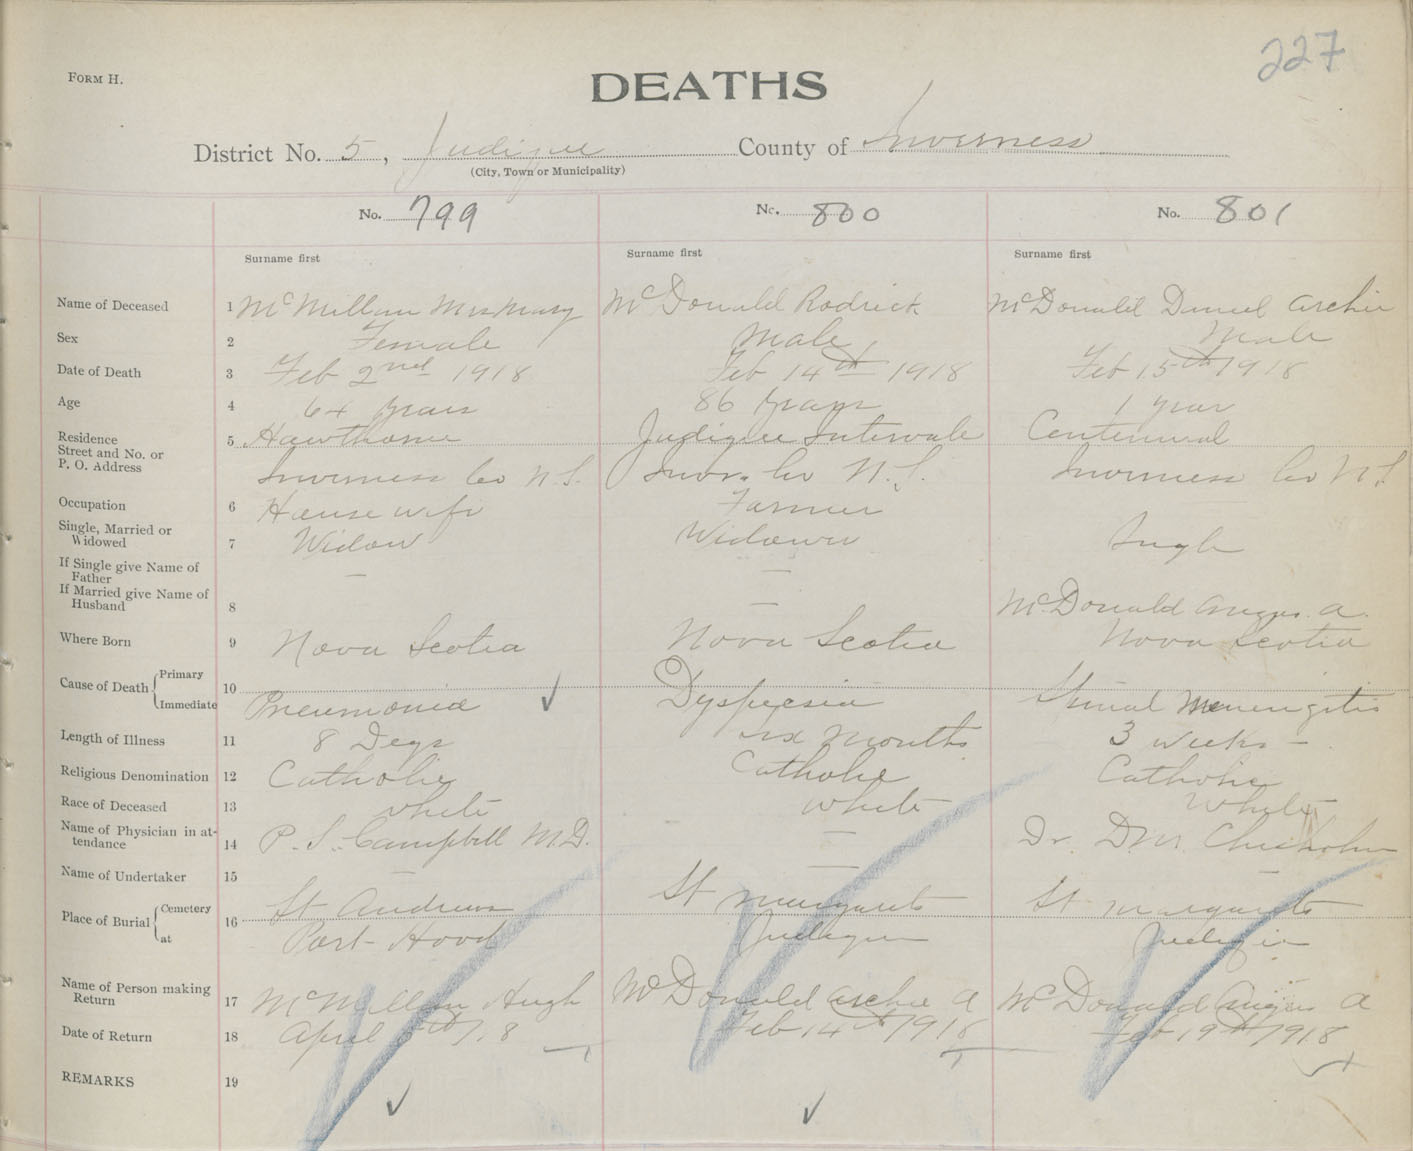 227
FORM H.
DEATHS
District No. 5, Judique County of Inverness
(City, Town or Municipality)
No. 799 No. 800 No. 801
Surname first Surname first Surname first
Name of Deceased 1 McMillan Mrs Mary McDonald Rodrick McDonald Daniel Archie
Sex 2 Female Male Male
Date of Death 3 Feb 2nd 1918 Feb 14th 1918 Feb 15th 1918
Age 4 64 years 86 years 1 year
Residence
Street and No. or
P. O. Address
5 Hawthorne Judique Intervale Centennial
Inverness Co N.S. Inver. Co N.S. Inverness Co N.S.
Occupation 6 House wife Farmer
Single, Married or
Widowed
7 Widow Widower Single
If Single give Name of
Father
If Married give Name of
Husband
8 — — McDonald Angus. A.
Where Born 9 Nova Scotia Nova Scotia Nova Scotia
Cause of Death Primary
Immediate
10 Pneumonia ✓ Dyspecsia Spinal Menengitis
Length of Illness 11 8 Days six months 3 weeks –
Religious Denomination 12 Catholic Catholic Catholic
Race of Deceased 13 white white White
Name of Physician in at-
tendance
14 P. S. Campbell M.D. — Dr. D.M. Chisholm
Name of Undertaker 15 — —
Place of Burial Cemetery
at
16 St Andrews St Margarets St Margarets
Port Hood Judique Judique
Name of Person making
Return
17 McMillan Hugh McDonald Archie A McDonald Angus A
Date of Return 18 April 18 Feb 14th 1918 Feb 19th 1918
REMARKS 19
✓ ✓